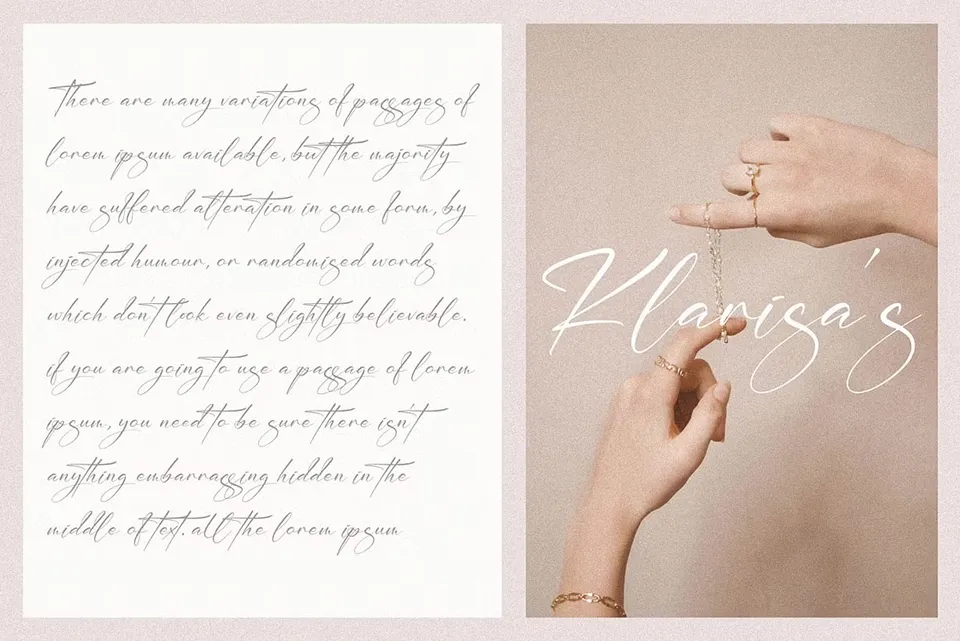 There are many variations of passages of
lorem ipsum available, but the majority
have suffered alteration in some form, by
injected humour, or randomised words
which don't look even slightly believable.
if you are going to use a passage of lorem
ipsum, you need to be sure there isn't
anything embarrassing hidden in the
middle of text. all the lorem ipsum
Klarisa's